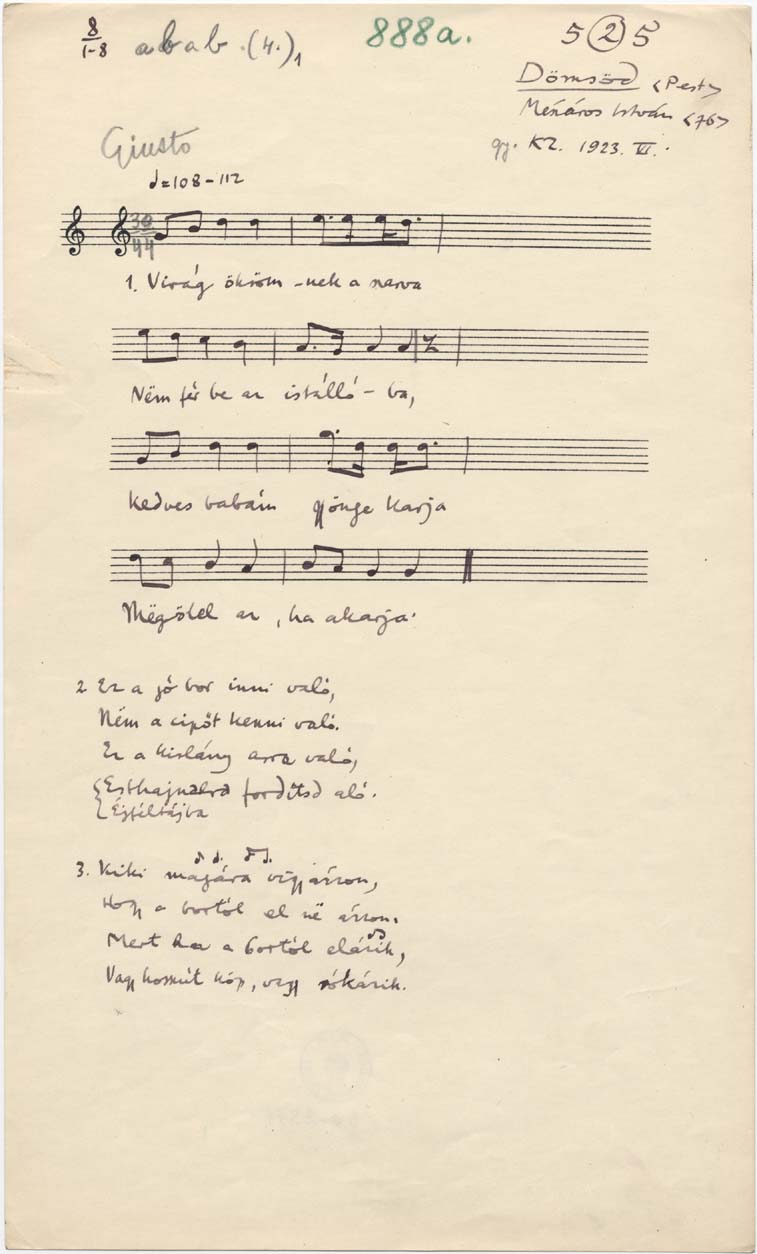 8/1-8 abab.(4.)₁ 888a. 5 ② 5
Dömsöd <Pest>
Mészáros István <76>
gy. KZ. 1923. VI.
Giusto
♩=108-112
1. Virág ökröm-nek a szarva
Nëm fér be az istálló-ba,
Kedves babám gyönge karja
Mëgölel az, ha akarja.
2 Ez a jó bor inni való,
Nëm a cipőt kenni való.
Ez a kislány arra való,
fordítsd aló.
Éjféltájba
3. Kiki magára vigyázzon,
Hogy a bortól el në ázzon.
Mert ha a bortól elázik,
Vagy kosszút kóp, vagy rókázik.